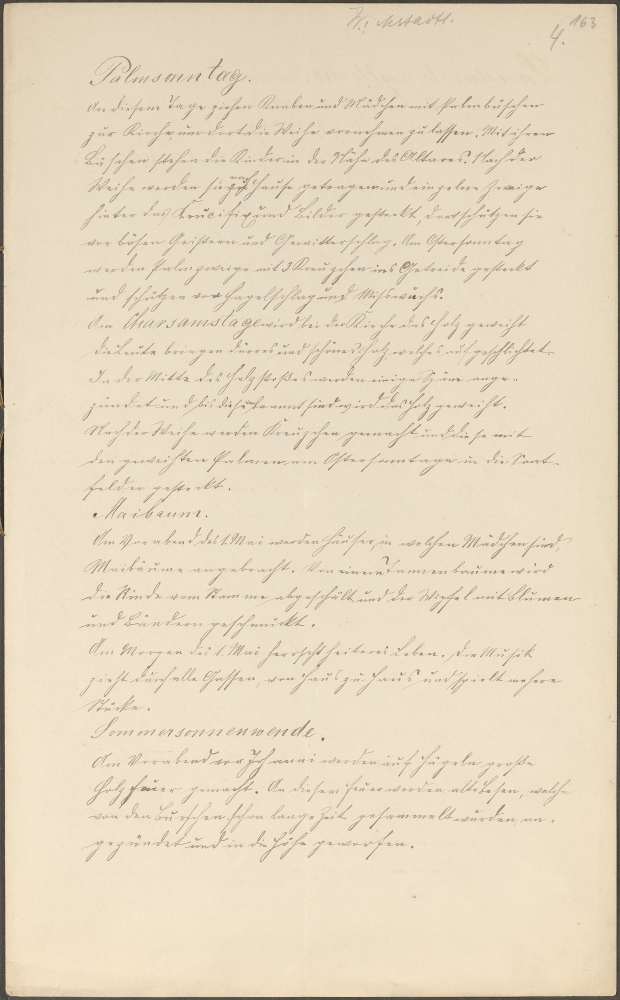 163
4.
Palmsonntag.
An diesem Tage ziehen Knaben und Mädchen mit Palmbuschen
zur Kirche, um dort die Weihe vornehmen zu lassen. Mit ihren
Büschen stehen die Kinder in der Nähe des Altares. Nach der
Weihe werden sie nach Hause getragen und einzelne Zweige
hinter das Krucifix und Bilder gesteckt, dort schützen sie
vor bösen Geistern und Gewitterschlag. Am Ostersonntag
werden Palmzweige mit 3 Kreuzchen ins Getreide gesteckt
und schützen vor Hagelschlag und Misswuchs.
Am Charsamstage wird bei der Kirche das Holz geweiht
die Leute bringen dürres und schönes Holz welches aufgeschlichtet.
In der Mitte des Holzstoßes werden einige Späne ange-
zündet und bis diese verbrannt sind wird das Holz geweiht.
Nach der Weihe werden Kreuzchen gemacht und diese mit
den geweihten Palmen am Ostersonntage in die Saat-
felder gesteckt.
Maibaum.
Am Vorabend des 1. Mai werden Häuser, in welchen Mädchen sind,
Maibäume angebracht. Von einem Tannenbaume wird
die Rinde vom Stamme abgeschält und der Wipfel mit Blumen
und Bändern geschmückt.
Am Morgen des 1. Mai herrscht heiteres Leben. Die Musik
zieht durch alle Gassen, von Haus zu Haus und spielt mehrere
Stücke.
Sommersonnenwende.
Am Vorabend vor Johanni werden auf Hügeln große
Holzfeuer gemacht. An diesem Feuer werden alte Besen, welche
von den Burschen schon lange Zeit gesammelt wurden, an-
gezündet und in die Höhe geworfen.